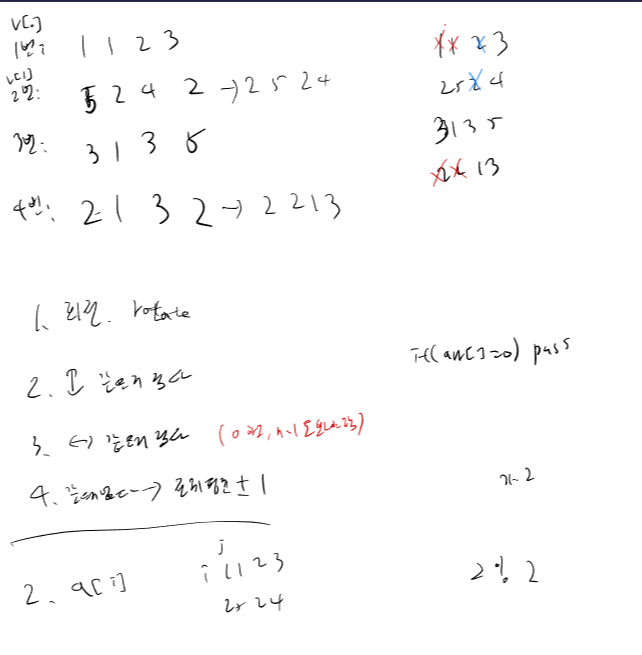 v[0]
1번: 1 1 2 3
v[1]
2번: 5 2 4 2 → 2 5 2 4
3번: 3 1 3 5
4번: 2 1 3 2 → 2 2 1 3
1 1 2 3
2 5 2 4
3 1 3 5
2 2 1 3
1. 회전. rotate
2. ↕ 같은지 검사
3. ↔ 같은지 검사
4. → ± 1
if(arr[]=0) pass
n-2
2. a[i]
j
i 1 1 2 3
2 5 2 4
2 % 2